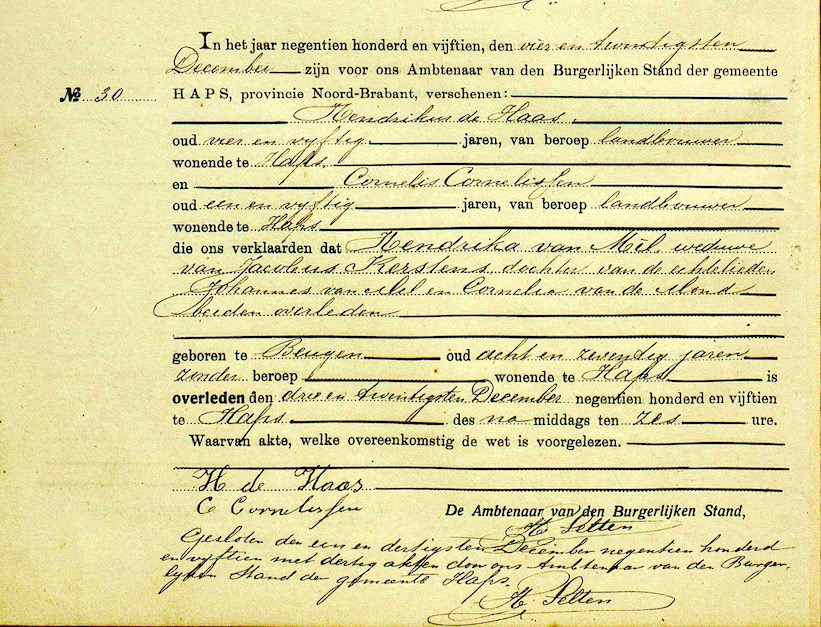 In het jaar negentien honderd en vijftien, den vier en twintigsten
December zijn voor ons Ambtenaar van den Burgerlijken Stand der gemeente
No. 30 HAPS, provincie Noord-Brabant, verschenen:
Hendrikus de Haas
oud vier en vyftig jaren, van beroep landbouwer
wonende te Haps
en Cornelis Cornelissen
oud een en vyftig jaren, van beroep landbouwer
wonende te Haps
die ons verklaarden dat Hendrika van Mil, weduwe
van Jacobus Kerstens, dochter van de echtelieden
Johannes van Mil en Cornelia van de Mond
beiden overleden
geboren te Beugen oud acht en zeventig jaren
zonder beroep wonende te Haps is
overleden den drie en twintigsten December negentien honderd en vijftien
te Haps des na middags ten zes ure.
Waarvan akte, welke overeenkomstig de wet is voorgelezen.
H de Haas
C Cornelissen
De Ambtenaar van den Burgerlijken Stand,
H. Selten
Gesloten den een en dertigsten December negentien honderd
en vyftien met dertig akten door ons Ambtenaar van den Burger-
lyken Stand der gemeente Haps.
H. Selten